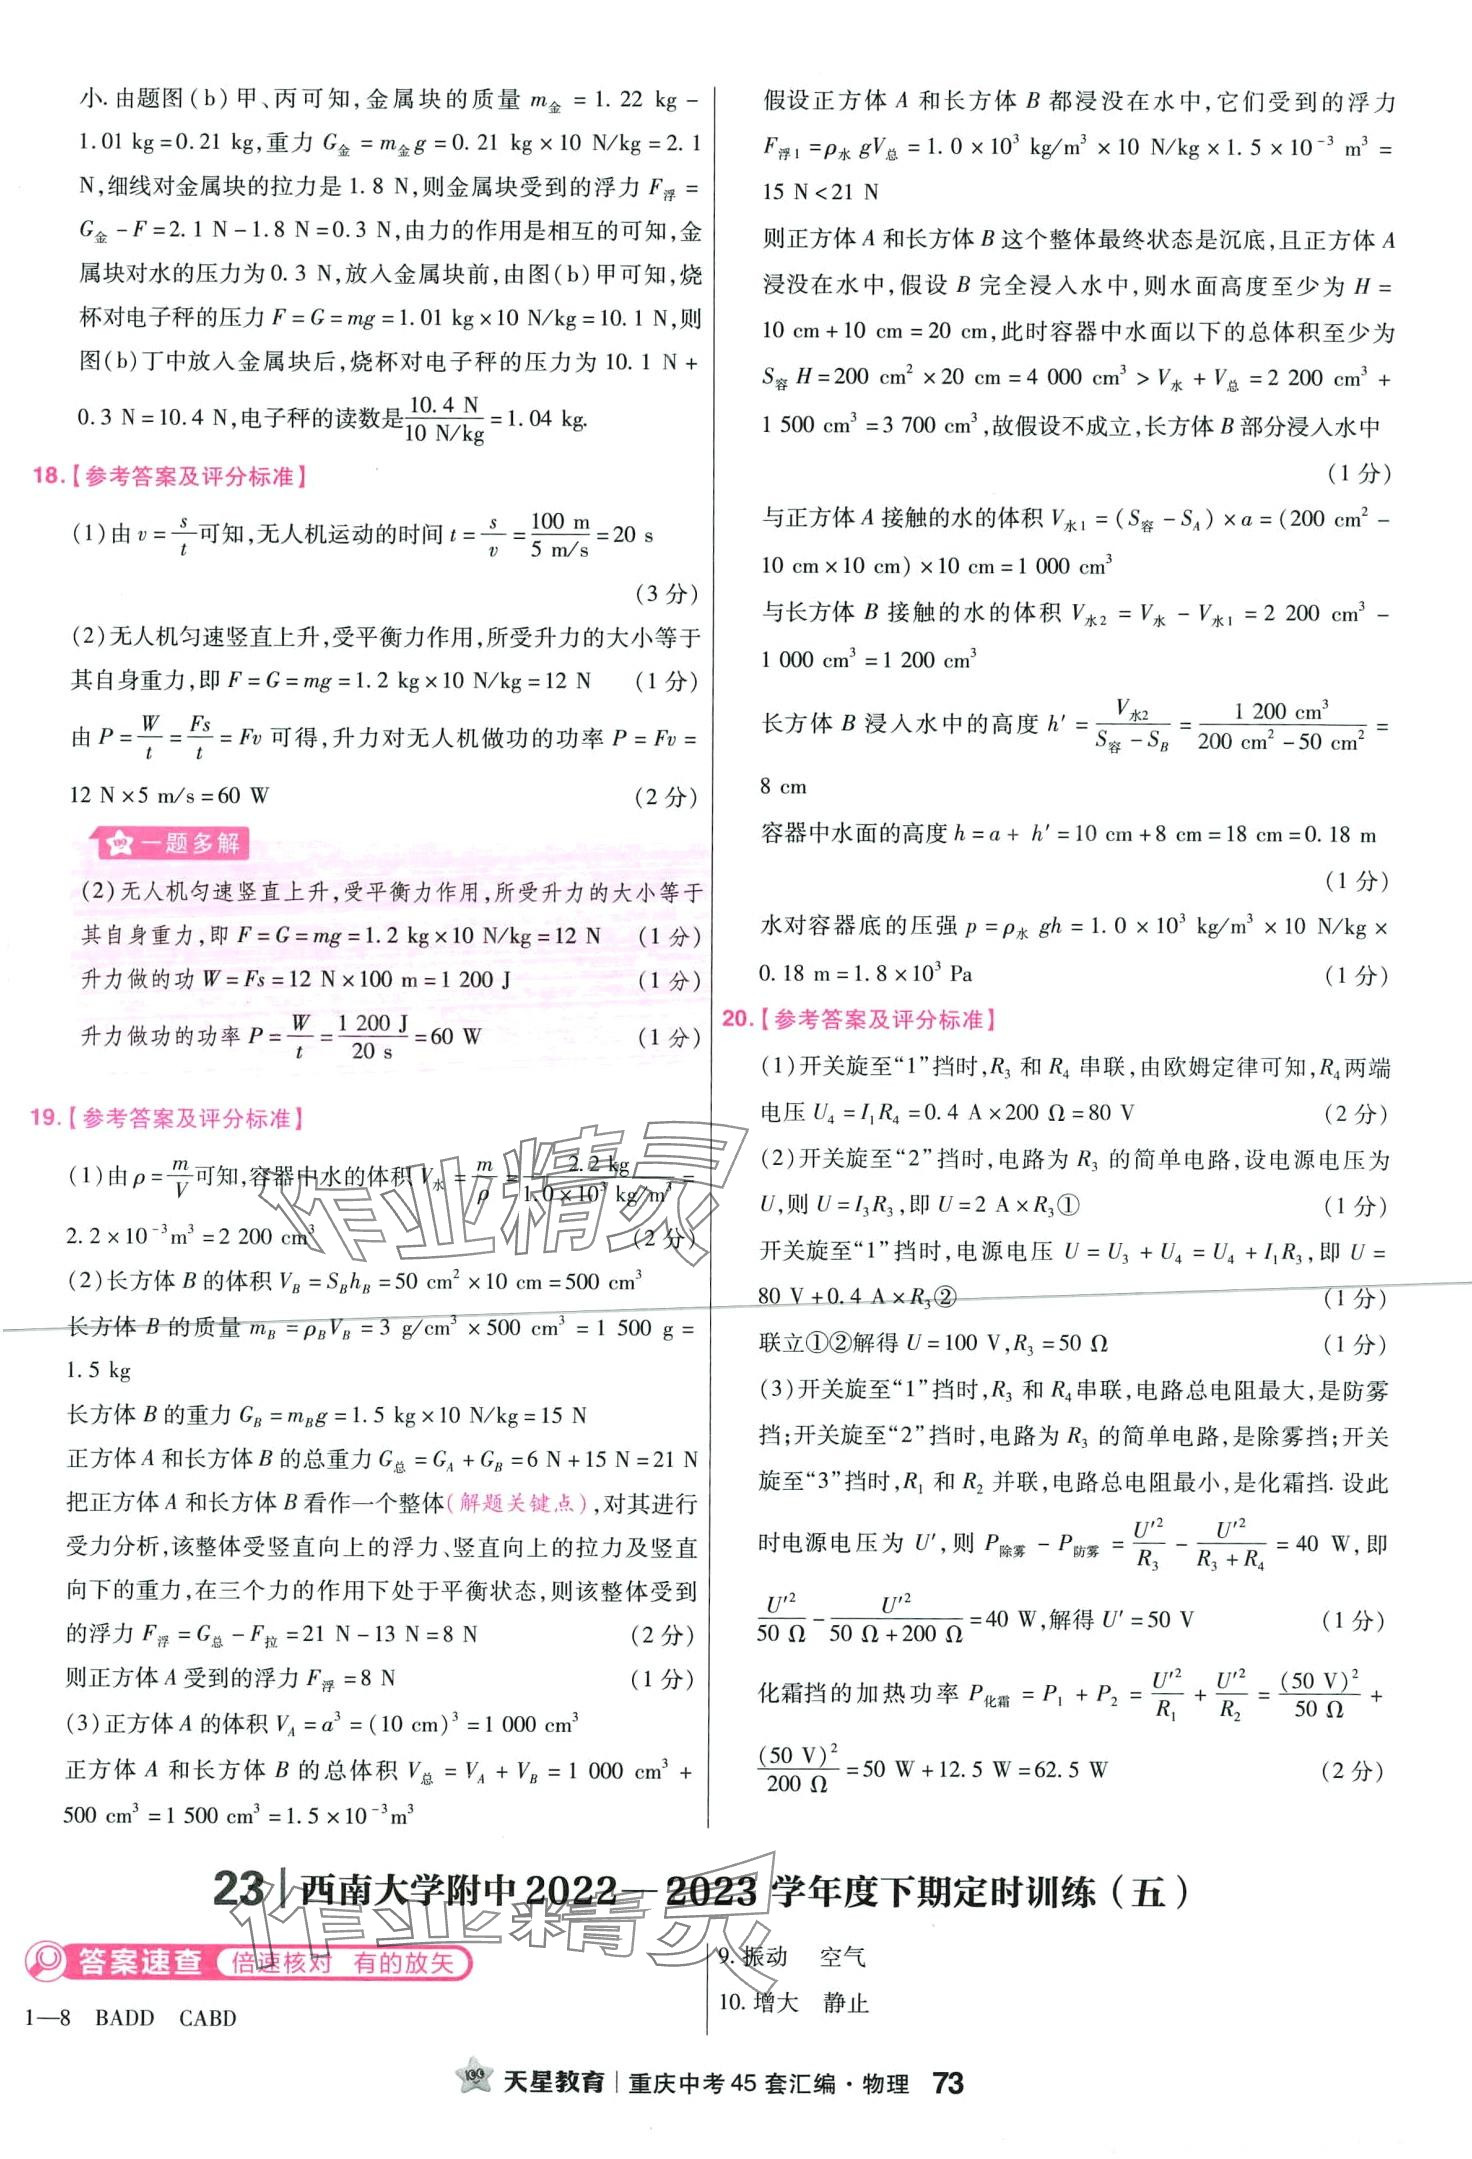 小. 由题图(b)甲、丙可知,金属块的质量 m金 = 1. 22 kg −
1. 01 kg = 0. 21 kg,重力 G金 = m金g = 0. 21 kg × 10 N/kg = 2. 1
N,细线对金属块的拉力是 1. 8 N,则金属块受到的浮力 F浮 =
G金 − F = 2. 1 N − 1. 8 N = 0. 3 N,由力的作用是相互的可知,金
属块对水的压力为 0. 3 N,放入金属块前,由图(b)甲可知,烧
杯对电子秤的压力 F = G = mg = 1. 01 kg × 10 N/kg = 10. 1 N,则
图(b)丁中放入金属块后,烧杯对电子秤的压力为 10. 1 N +
0. 3 N = 10. 4 N,电子秤的读数是 10. 4 N / 10 N/kg = 1. 04 kg.
18.【参考答案及评分标准】
(1)由 v = s/t 可知,无人机运动的时间 t = s/v = 100 m / 5 m/s = 20 s
(3 分)
(2)无人机匀速竖直上升,受平衡力作用,所受升力的大小等于
其自身重力,即 F = G = mg = 1. 2 kg × 10 N/kg = 12 N (1 分)
由 P = W/t = Fs/t = Fv 可得,升力对无人机做功的功率 P = Fv =
12 N × 5 m/s = 60 W (2 分)
一题多解
(2)无人机匀速竖直上升,受平衡力作用,所受升力的大小等于
其自身重力,即 F = G = mg = 1. 2 kg × 10 N/kg = 12 N (1 分)
升力做的功 W = Fs = 12 N × 100 m = 1 200 J (1 分)
升力做功的功率 P = W/t = 1 200 J / 20 s = 60 W (1 分)
19.【参考答案及评分标准】
(1)由 ρ = m/V 可知,容器中水的体积 V水 = m/ρ = 2. 2 kg / 1. 0 × 10³ kg/m³ =
2. 2 × 10⁻³ m³ = 2 200 cm³ (2 分)
(2)长方体 B 的体积 V_B = S_B h_B = 50 cm² × 10 cm = 500 cm³
长方体 B 的质量 m_B = ρ_B V_B = 3 g/cm³ × 500 cm³ = 1 500 g =
1. 5 kg
长方体 B 的重力 G_B = m_B g = 1. 5 kg × 10 N/kg = 15 N
正方体 A 和长方体 B 的总重力 G总 = G_A + G_B = 6 N + 15 N = 21 N
把正方体 A 和长方体 B 看作一个整体(解题关键点),对其进行
受力分析,该整体受竖直向上的浮力、竖直向上的拉力及竖直
向下的重力,在三个力的作用下处于平衡状态,则该整体受到
的浮力 F浮 = G总 − F拉 = 21 N − 13 N = 8 N (2 分)
则正方体 A 受到的浮力 F浮 = 8 N (1 分)
(3)正方体 A 的体积 V_A = a³ = (10 cm)³ = 1 000 cm³
正方体 A 和长方体 B 的总体积 V总 = V_A + V_B = 1 000 cm³ +
500 cm³ = 1 500 cm³ = 1. 5 × 10⁻³ m³
假设正方体 A 和长方体 B 都浸没在水中,它们受到的浮力
F浮1 = ρ水 gV总 = 1. 0 × 10³ kg/m³ × 10 N/kg × 1. 5 × 10⁻³ m³ =
15 N < 21 N
则正方体 A 和长方体 B 这个整体最终状态是沉底,且正方体 A
浸没在水中,假设 B 完全浸入水中,则水面高度至少为 H =
10 cm + 10 cm = 20 cm,此时容器中水面以下的总体积至少为
S容 H = 200 cm² × 20 cm = 4 000 cm³ > V水 + V总 = 2 200 cm³ +
1 500 cm³ = 3 700 cm³,故假设不成立,长方体 B 部分浸入水中
(1 分)
与正方体 A 接触的水的体积 V水1 = (S容 − S_A) × a = (200 cm² −
10 cm × 10 cm) × 10 cm = 1 000 cm³
与长方体 B 接触的水的体积 V水2 = V水 − V水1 = 2 200 cm³ −
1 000 cm³ = 1 200 cm³
长方体 B 浸入水中的高度 h′ = V水2 / S容 − S_B = 1 200 cm³ / 200 cm² − 50 cm² =
8 cm
容器中水面的高度 h = a + h′ = 10 cm + 8 cm = 18 cm = 0. 18 m
(1 分)
水对容器底的压强 p = ρ水 gh = 1. 0 × 10³ kg/m³ × 10 N/kg ×
0. 18 m = 1. 8 × 10³ Pa (1 分)
20.【参考答案及评分标准】
(1)开关旋至“1”挡时,R₃ 和 R₄ 串联,由欧姆定律可知,R₄两端
电压 U₄ = I₁R₄ = 0. 4 A × 200 Ω = 80 V (2 分)
(2)开关旋至“2”挡时,电路为 R₃ 的简单电路,设电源电压为
U,则 U = I₃R₃,即 U = 2 A × R₃① (1 分)
开关旋至“1”挡时,电源电压 U = U₃ + U₄ = U₄ + I₁R₃,即 U =
80 V + 0. 4 A × R₃② (1 分)
联立①②解得 U = 100 V,R₃ = 50 Ω (1 分)
(3)开关旋至“1”挡时,R₃ 和 R₄串联,电路总电阻最大,是防雾
挡;开关旋至“2”挡时,电路为 R₃ 的简单电路,是除雾挡;开关
旋至“3”挡时,R₁ 和 R₂ 并联,电路总电阻最小,是化霜挡. 设此
时电源电压为 U′,则 P除雾 − P防雾 = U′²/R₃ − U′²/R₃ + R₄ = 40 W,即
U′²/50 Ω − U′²/50 Ω + 200 Ω = 40 W,解得 U′ = 50 V (1 分)
化霜挡的加热功率 P化霜 = P₁ + P₂ = U′²/R₁ + U′²/R₂ = (50 V)²/50 Ω +
(50 V)²/200 Ω = 50 W + 12. 5 W = 62. 5 W (2 分)
作业精灵
23 | 西南大学附中 2022—2023 学年度下期定时训练(五)
作业精灵
答案速查 倍速核对 有的放矢
1—8 BADD CABD
9. 振动 空气
10. 增大 静止
天星教育 | 重庆中考 45 套汇编·物理 73